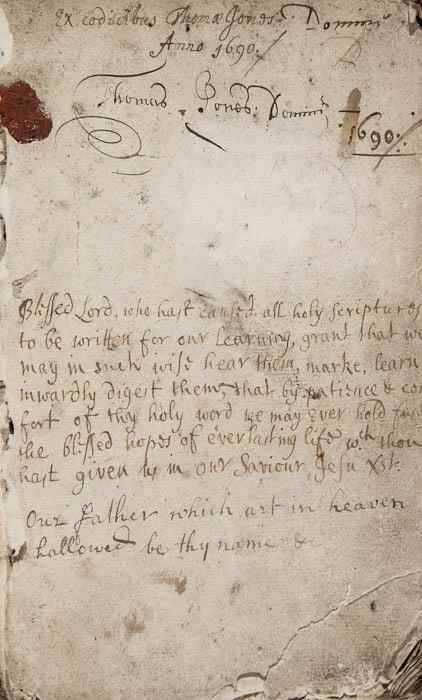 Ex codicibus Thomæ Jones. Domini
Anno 1690.
Thomas Jones. Domini 1690.
Blessed Lord, who hast caused all holy Scriptures
to be written for our learning, grant that we
may in such wise hear them, marke, learn
inwardly digest them, that by patience & com
fort of thy holy word we may ever hold fast
the blessed hopes of everlasting life wch thou
hast given us in our Saviour Jesu Xt.
Our Father which art in heaven
hallowed be thy name &c